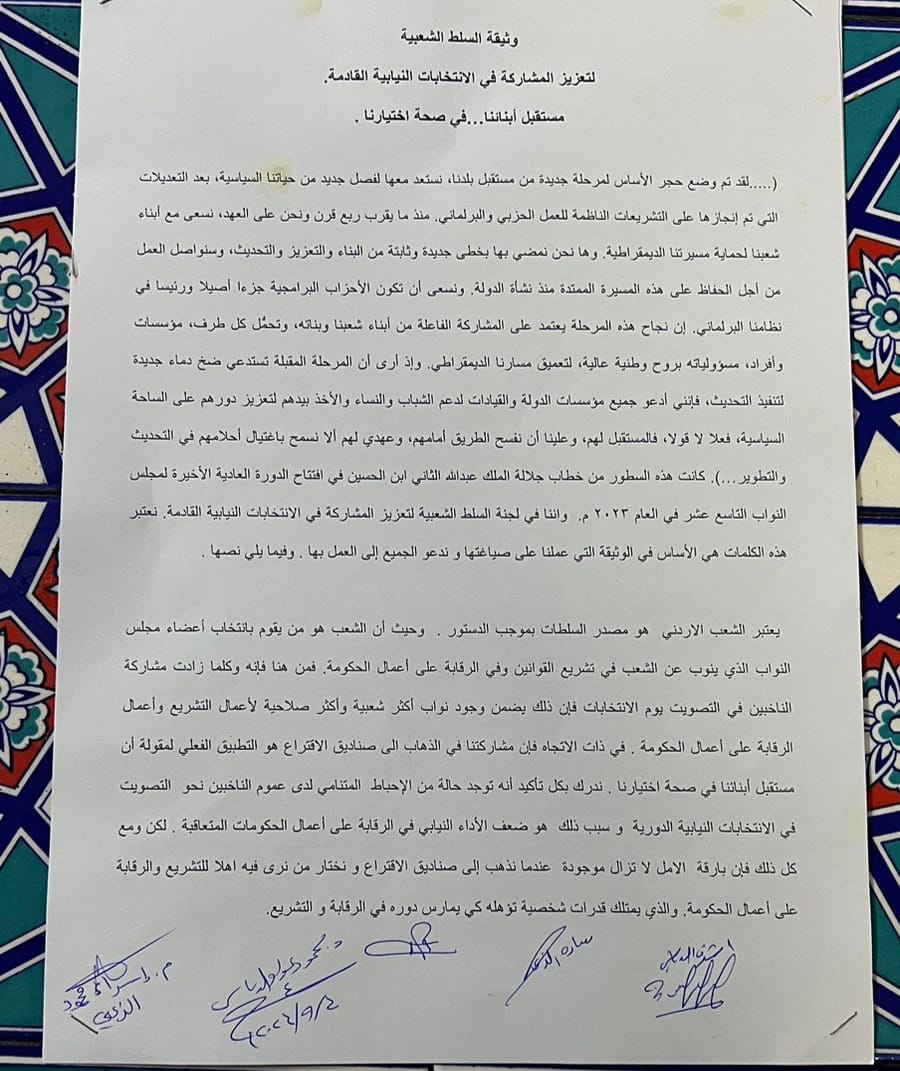 وثيقة السلط الشعبية
لتعزيز المشاركة في الانتخابات النيابية القادمة.
مستقبل أبنائنا...في صحة اختيارنا .
(.....لقد تم وضع حجر الأساس لمرحلة جديدة من مستقبل بلدنا، نستعد معها لفصل جديد من حياتنا السياسية، بعد التعديلات
التي تم إنجازها على التشريعات الناظمة للعمل الحزبي والبرلماني. منذ ما يقرب ربع قرن ونحن على العهد، نسعى مع أبناء
شعبنا لحماية مسيرتنا الديمقراطية. وها نحن نمضي بها بخطى جديدة وثابتة من البناء والتعزيز والتحديث، وسنواصل العمل
من أجل الحفاظ على هذه المسيرة الممتدة منذ نشأة الدولة. ونسعى أن تكون الأحزاب البرامجية جزءا أصيلا ورئيسا في
نظامنا البرلماني. إن نجاح هذه المرحلة يعتمد على المشاركة الفاعلة من أبناء شعبنا وبناته، وتحمُّل كل طرف، مؤسسات
وأفراد، مسؤولياته بروح وطنية عالية، لتعميق مسارنا الديمقراطي. وإذ أرى أن المرحلة المقبلة تستدعي ضخ دماء جديدة
لتنفيذ التحديث، فإنني أدعو جميع مؤسسات الدولة والقيادات لدعم الشباب والنساء والأخذ بيدهم لتعزيز دورهم على الساحة
السياسية، فعلا لا قولا، فالمستقبل لهم، وعلينا أن نفسح الطريق أمامهم، وعهدي لهم ألا نسمح باغتيال أحلامهم في التحديث
والتطوير...). كانت هذه السطور من خطاب جلالة الملك عبدالله الثاني ابن الحسين في افتتاح الدورة العادية الأخيرة لمجلس
النواب التاسع عشر في العام ٢٠٢٣ م. واننا في لجنة السلط الشعبية لتعزيز المشاركة في الانتخابات النيابية القادمة. نعتبر
هذه الكلمات هي الأساس في الوثيقة التي عملنا على صياغتها و ندعو الجميع إلى العمل بها . وفيما يلي نصها .
يعتبر الشعب الاردني هو مصدر السلطات بموجب الدستور . وحيث أن الشعب هو من يقوم بانتخاب أعضاء مجلس
النواب الذي ينوب عن الشعب في تشريع القوانين وفي الرقابة على أعمال الحكومة. فمن هنا فإنه وكلما زادت مشاركة
الناخبين في التصويت يوم الانتخابات فإن ذلك يضمن وجود نواب أكثر شعبية وأكثر صلاحية لأعمال التشريع وأعمال
الرقابة على أعمال الحكومة . في ذات الاتجاه فإن مشاركتنا في الذهاب الى صناديق الاقتراع هو التطبيق الفعلي لمقولة أن
مستقبل أبنائنا في صحة اختيارنا . ندرك بكل تأكيد أنه توجد حالة من الإحباط المتنامي لدى عموم الناخبين نحو التصويت
في الانتخابات النيابية الدورية و سبب ذلك هو ضعف الأداء النيابي في الرقابة على أعمال الحكومات المتعاقبة . لكن ومع
كل ذلك فإن بارقة الامل لا تزال موجودة عندما نذهب إلى صناديق الاقتراع و نختار من نرى فيه اهلا للتشريع والرقابة
على أعمال الحكومة. والذي يمتلك قدرات شخصية تؤهله كي يمارس دوره في الرقابة و التشريع.
سارة الزعبي
د. محمود
م. إسراء محمود
الزعبي